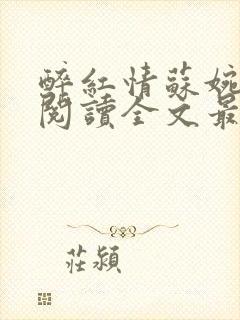 醉紅情蘇婉
閱讀全文最
莊潁